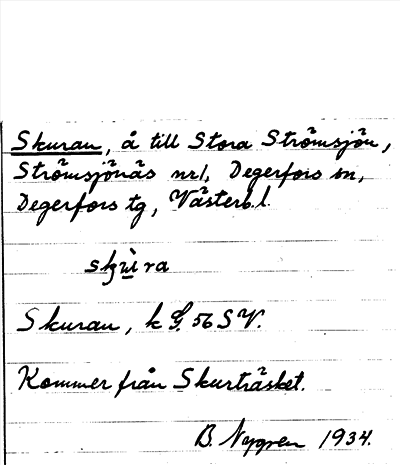 Skuran, å till Stora Strömsjön,
Strömsjönäs nr 1, Degerfors sn,
Degerfors tg, Västerb. l.
Skuran, k G. 56 SV.
Kommer från Skurträsket.
B. Nygren 1934.